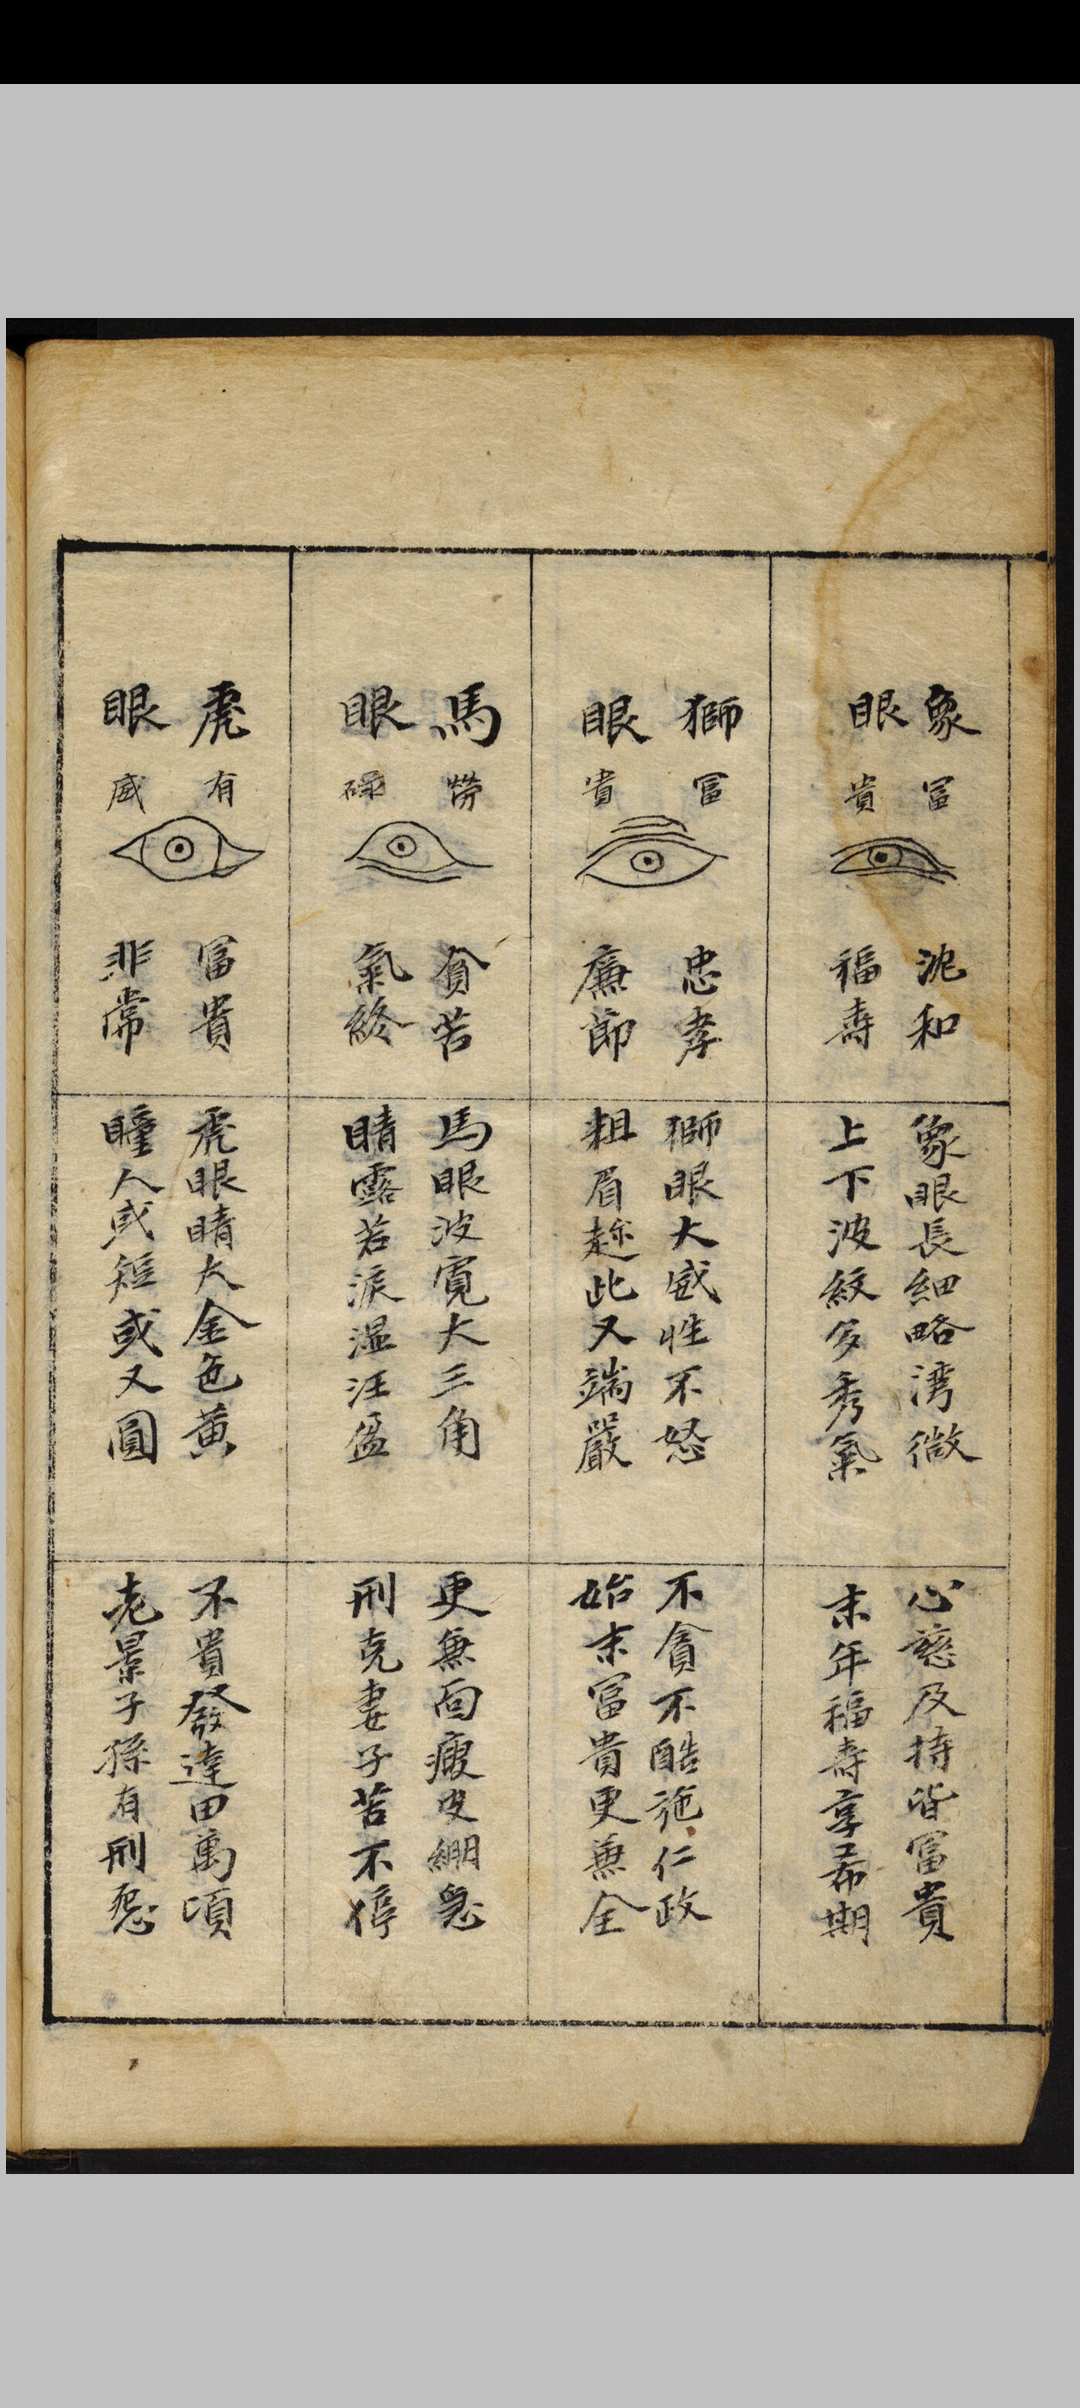 象
眼
富
貴
沈和
福壽
象眼長細略湾微
上下波紋多秀氣
心慈及持皆富貴
末年福壽享希期
獅
眼
富
貴
忠孝
廉節
獅眼大威性不怒
粗眉趂此又端嚴
不貪不酷施仁政
始末冨貴更兼全
馬
眼
勞
碌
貧苦
氣終
馬眼波寬大三角
睛露若淚湿汪盈
更無面瘦皮綳急
刑克妻子苦不停
虎
眼
有
威
冨貴
非常
虎眼睛大金色黄
瞳人或短或又圓
不貴發達田萬頃
老景子孫有刑怨